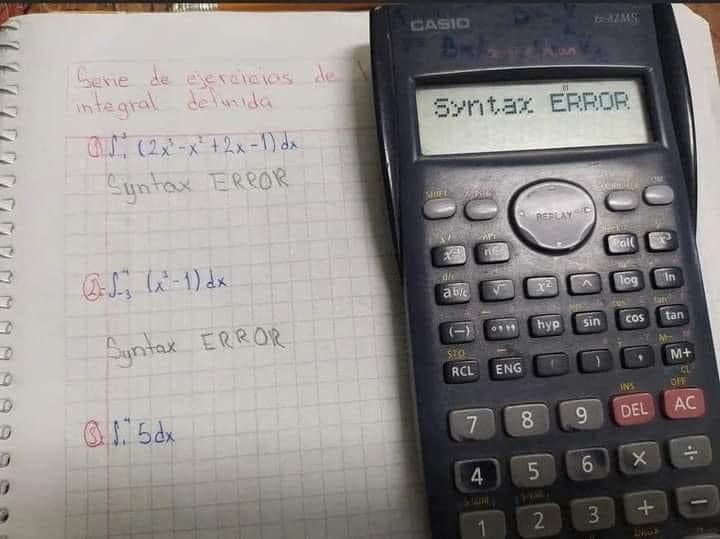 Serie de ejercicios de
integral definida
(2x³-x²+2x-1)dx
Syntax ERROR
(x²-1)dx
Syntax ERROR
5dx
CASIO
fx-82MS
Syntax ERROR
SHIFT ALPHA ON
REPLAY
x³
ab/c √ x² ^ log ln
(-) hyp sin cos tan
STO
RCL ENG ) , M+
INS OFF
7 8 9 DEL AC
4 5 6 × ÷
1 2 3 + −